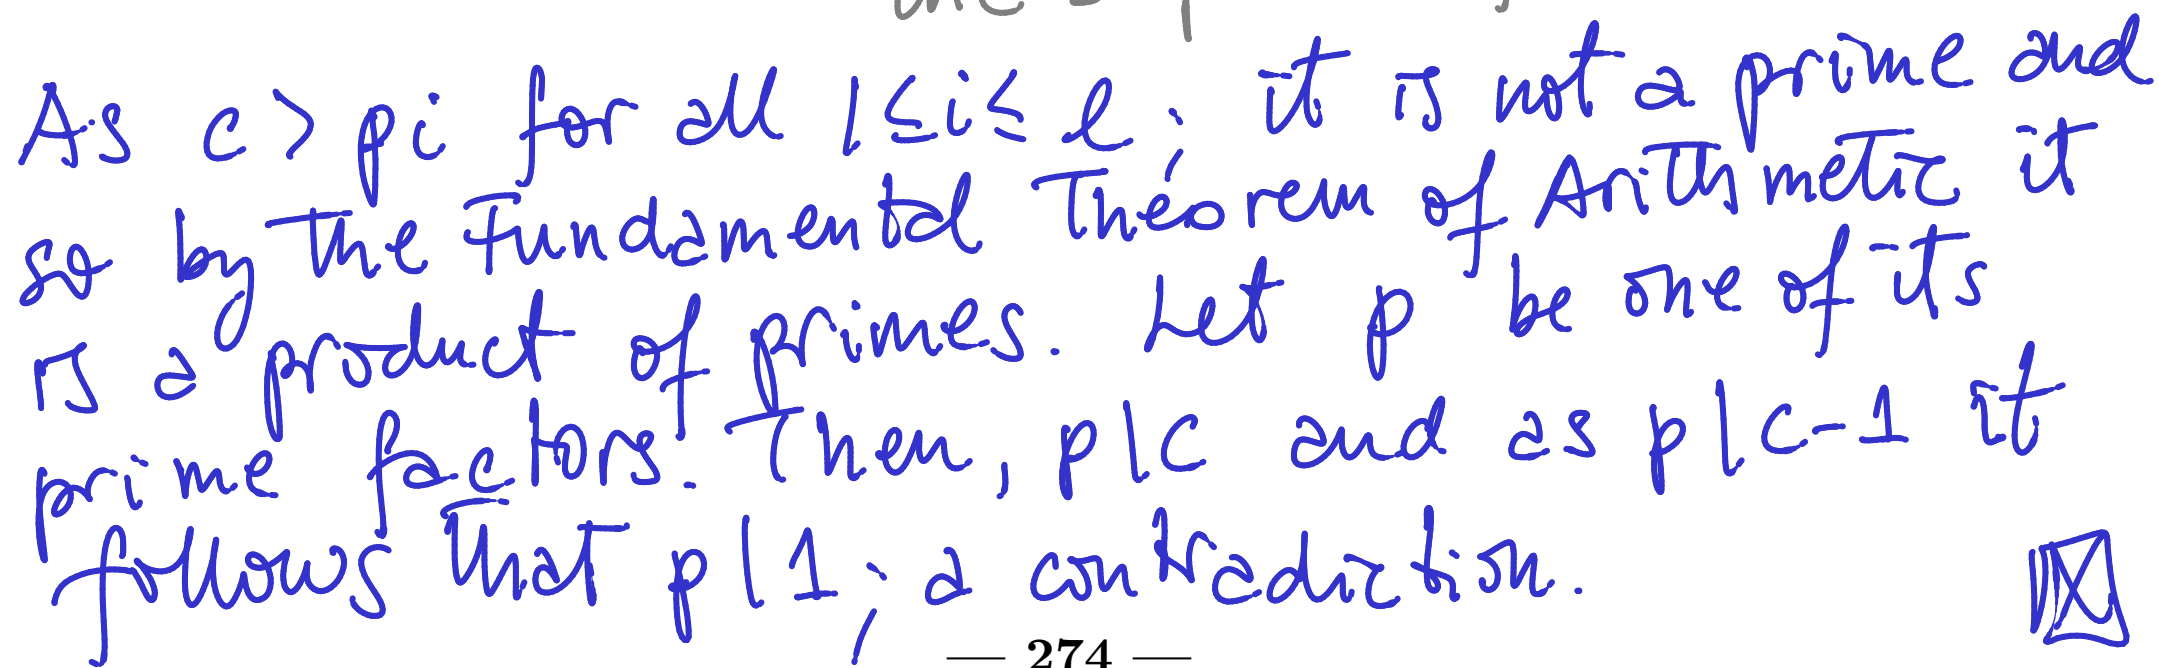 As c > pi for all 1 ≤ i ≤ l; it is not a prime and
so by the Fundamental Theorem of Arithmetic it
is a product of primes. Let p be one of its
prime factors. Then, p|c and as p|c-1 it
follows that p|1; a contradiction.
— 274 —